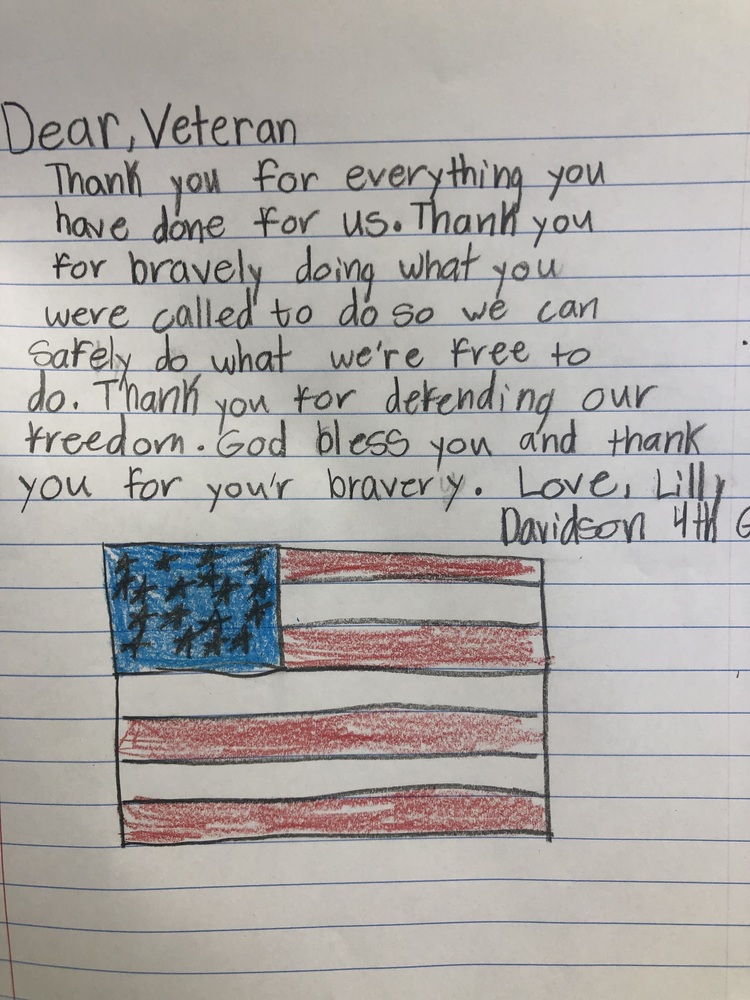 Dear, Veteran
Thank you for everything you
have done for us. Thank you
for bravely doing what you
were called to do so we can
safely do what we're free to
do. Thank you for defending our
freedom. God bless you and thank
you for you'r bravery. Love, Lilly
Davidson 4th G